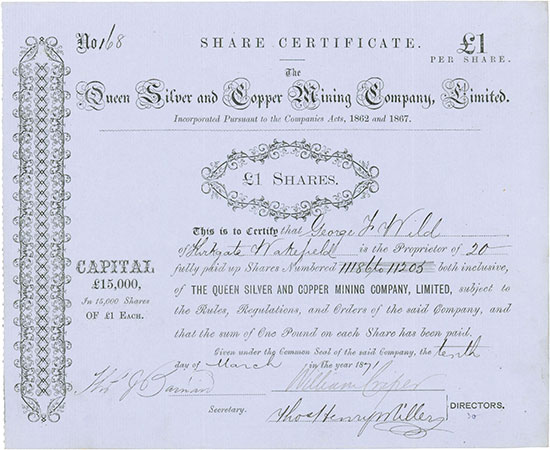 No 168
SHARE CERTIFICATE.
£1
PER SHARE.
The
Queen Silver and Copper Mining Company, Limited.
Incorporated Pursuant to the Companies Acts, 1862 and 1867.
£1 SHARES.
This is to Certify that George F Wild
of Wakefield is the Proprietor of 20
fully paid up Shares Numbered 11186 to 11205 both inclusive,
of THE QUEEN SILVER AND COPPER MINING COMPANY, LIMITED, subject to
the Rules, Regulations, and Orders of the said Company, and
that the sum of One Pound on each Share has been paid.
Given under the Common Seal of the said Company, the tenth
day of March in the year 1871
CAPITAL
£15,000,
In 15,000 Shares
OF £1 EACH.
Thos J
Secretary.
William
Thos Henry Miller
DIRECTORS.
30